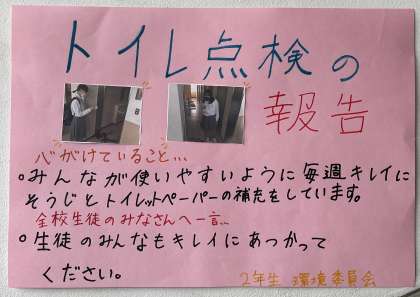 トイレ点検の
報告
心がけていること…
。みんなが使いやすいように毎週キレイに
そうじとトイレットペーパーの補充をしています。
全校生徒のみなさんへ一言…
。生徒のみんなもキレイにあつかって
ください。
2年生 環境委員会